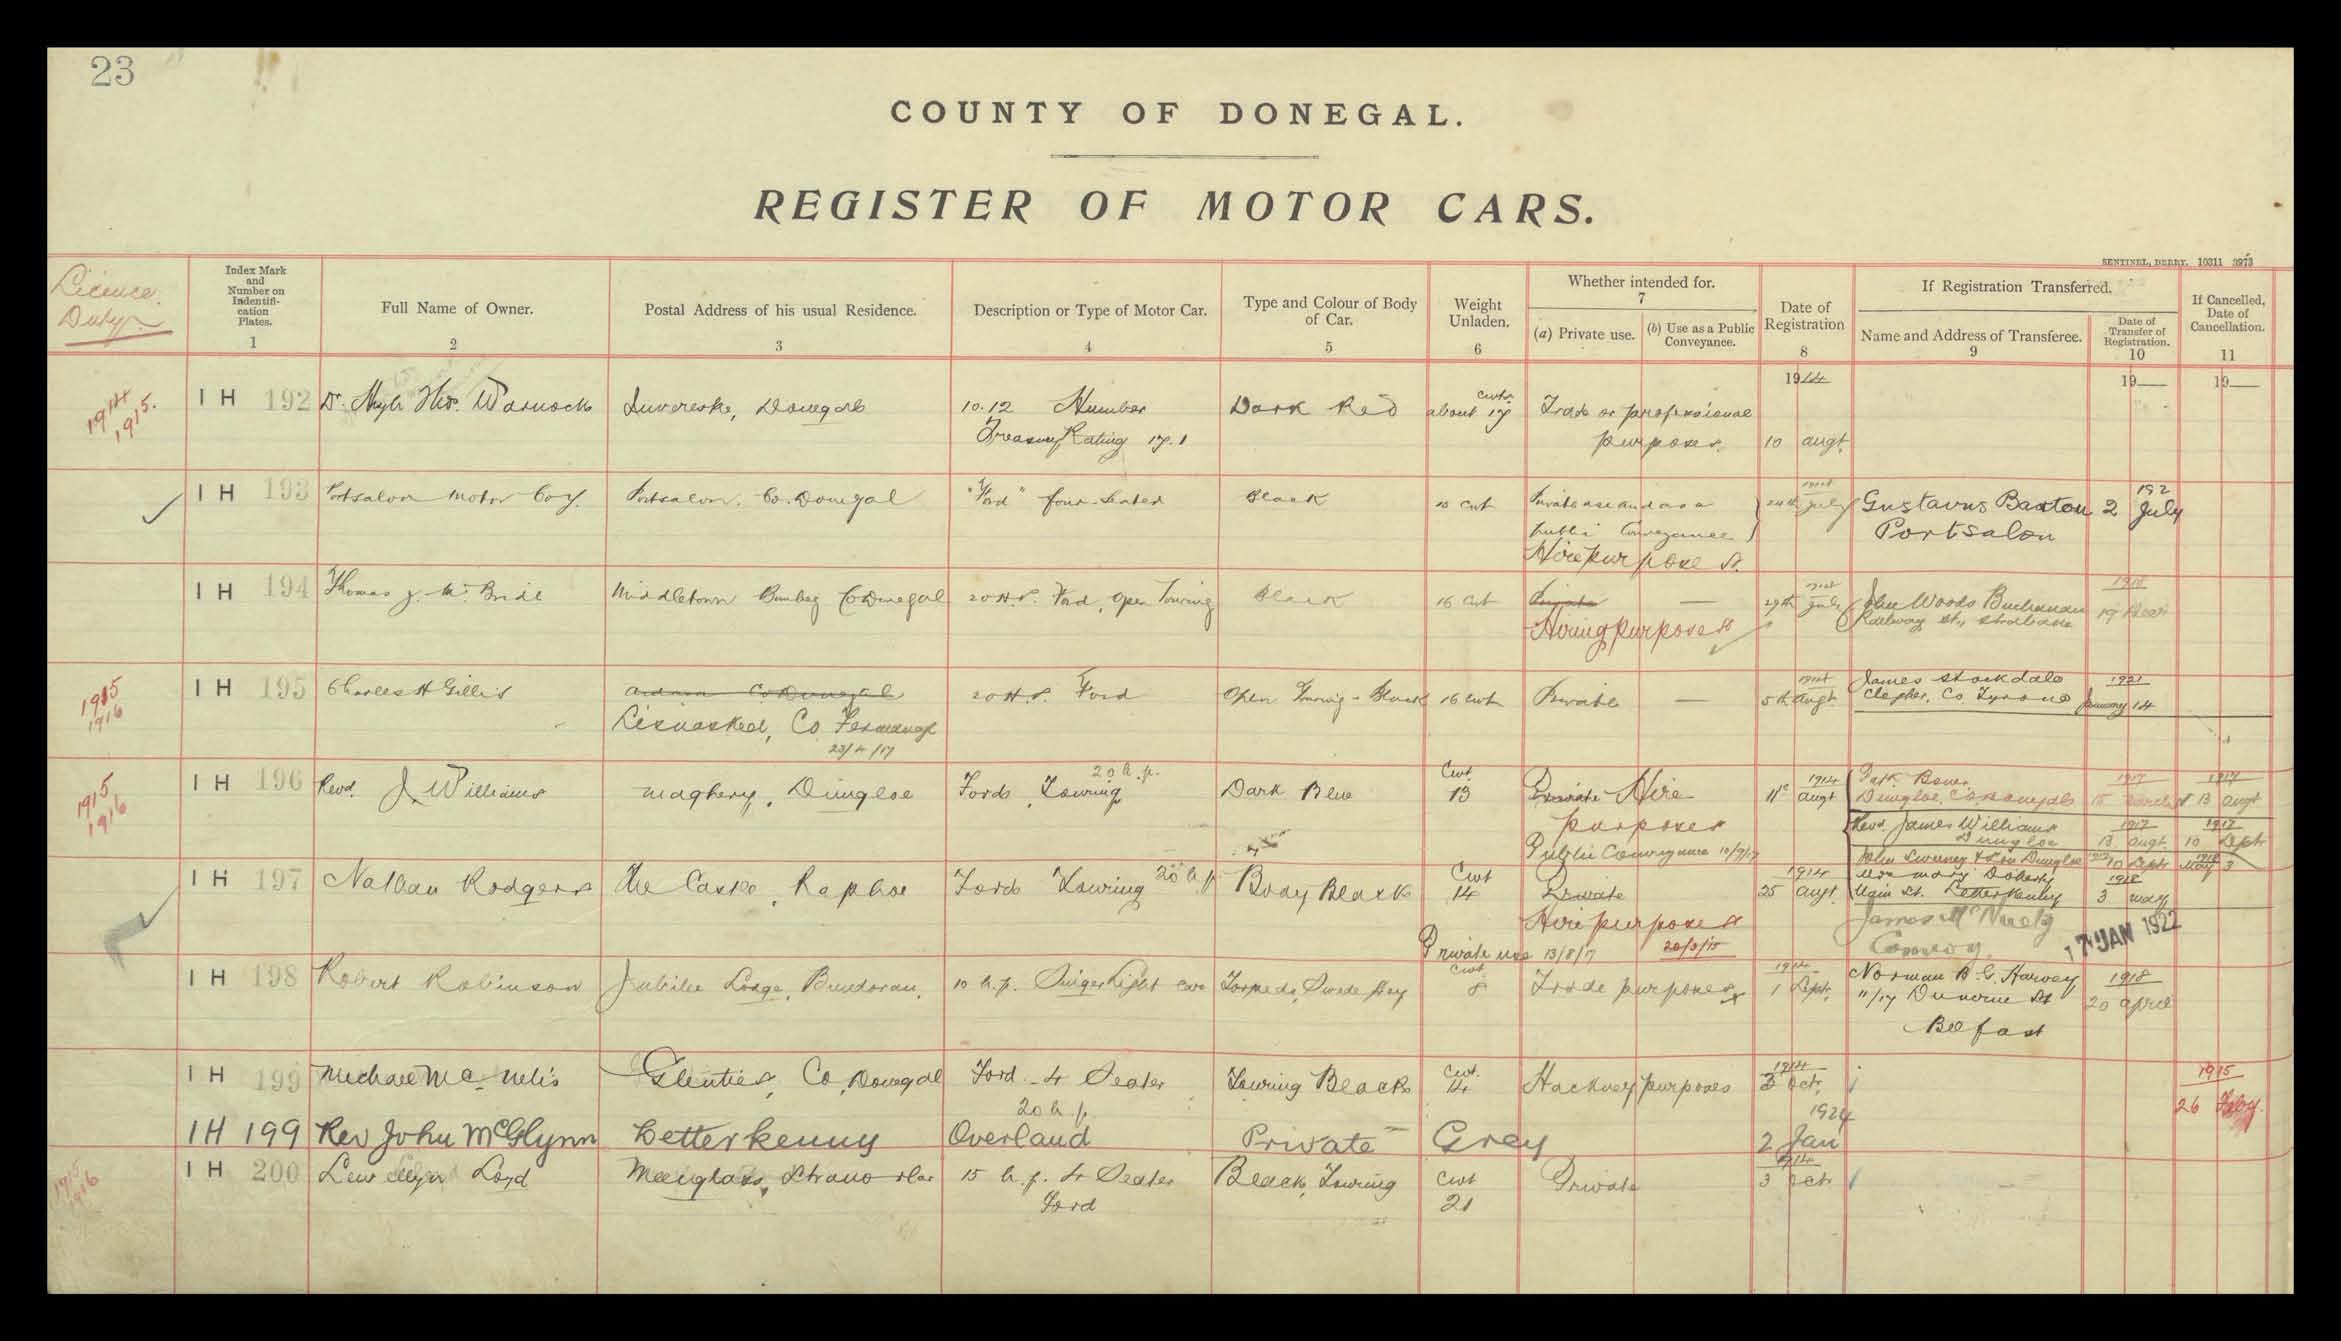 23
COUNTY OF DONEGAL.
REGISTER OF MOTOR CARS.
SENTINEL, DERRY. 10311 3973
Licence Duty
Index Mark and Number on Indentifi- cation Plates. 1
Full Name of Owner. 2
Postal Address of his usual Residence. 3
Description or Type of Motor Car. 4
Type and Colour of Body of Car. 5
Weight Unladen. 6
Whether intended for. 7
(a) Private use.
(b) Use as a Public Conveyance.
Date of Registration 8
If Registration Transferred.
Name and Address of Transferee. 9
Date of Transfer of Registration. 10
If Cancelled, Date of Cancellation. 11
1914 1915.
I H 192 Dr. Hugh Thos. Warnock Invereske, Donegal 10.12 Humber Dark Red about 17 cwts. Trade or professional 1914 19 19
Treasury Rating 17.1 purposes. 10 Augt.
I H 193 Portsalon Motor Coy. Portsalon. Co. Donegal "Ford" four-seated Black 10 cwt Private use and as a 24th July Gustavus Baxton 2 July 192
public Conveyance Portsalon
Hire purposes.
I H 194 Thomas J. McBride Middletown Bunbeg Co Donegal 20 H.P. Ford, Open Touring Black 16 cwt Private — 29th July John Woods Buchanan 1918
Hiring purposes Railway St., Strabane 19
1915 1916
I H 195 Charles H Gillis Co Donegal 20 H.P. Ford Open Touring - Black 16 cwt Private — 5th Augt James Stockdale 1921
Lisnaskea, Co. Fermanagh Clogher, Co Tyrone January 14
23/4/17
1915 1916
I H 196 Revd. J. Williams Maghery, Dungloe Fords Touring 20 h.p. Dark Blue Cwt 13 Private Hire 1914 11 Augt Patk. Boner 1917 1917
purposes Dungloe, Co. Donegal 15 March 13 Augt
Public Conveyance 10/9/17 Revd. James Williams 1917 1917
Dungloe 13 Augt. 10 Sept
John Sweeney & Son Dungloe 10 Septr May 3 1918
I H 197 Nathan Rodgers The Castle, Raphoe Fords Touring 20 h.p Body Black Cwt 14 Private 1914 25 Augt Mrs Mary Doherty 1918
Main St. Letterkenny 3 May
Hire purposes James McNeely
Private use 13/8/17 20/3/15 Convoy 17 JAN 1922
I H 198 Robert Robinson Jubilee Lodge, Bundoran, 10 h.p. Singer Light Car Torpedo, Suede Grey cwt 8 Trade purposes 1914 1 Sept. Norman B. G. Harvey 1918
11/17 St 20 April
Belfast
I H 199 Michael McNelis Glenties, Co. Donegal Ford 4 Seater Touring Black Cwt. 14 Hackney purposes 1914 3 Oct. 1915
20 h.p. 26 Feby.
IH 199 Rev John McGlynn Letterkenny Overland Private Grey 1924 2 Jan
1915 1916
I H 200 Lewellyn Lord Meenglass, Stranorlar 15 h.p. 4 Seater Black, Touring Cwt Private 1914 3 Oct
Ford 21